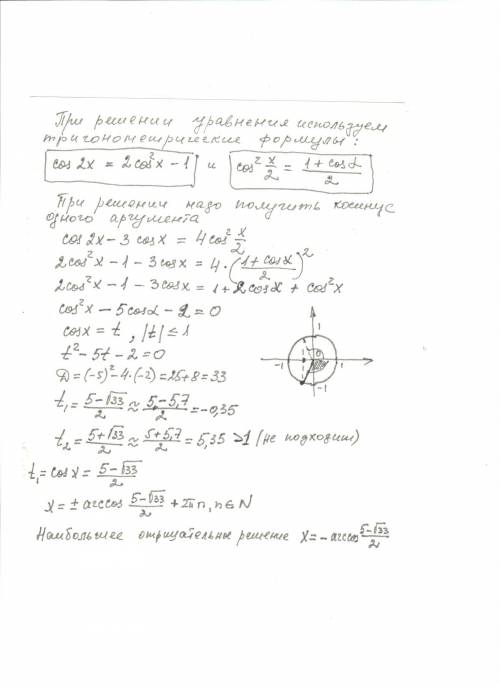 При решении уравнения используем
тригонометрические формулы:
cos 2x = 2cos²x − 1 и cos² x/2 = (1 + cos α)/2
При решении надо получить косинус
одного аргумента
cos 2x − 3 cos x = 4 cos² x/2
2cos²x − 1 − 3cos x = 4 · ((1 + cos α)/2)²
2cos²x − 1 − 3cos x = 1 + 2cos α + cos²x
cos²x − 5cos α − 2 = 0
cos x = t, |t| ≤ 1
t² − 5t − 2 = 0
D = (−5)² − 4·(−2) = 25 + 8 = 33
t₁ = (5 − √33)/2 ≈ (5 − 5,7)/2 = −0,35
t₂ = (5 + √33)/2 ≈ (5 + 5,7)/2 = 5,35 > 1 (не подходит)
t₁ = cos x = (5 − √33)/2
x = ± arccos (5 − √33)/2 + 2πn, n ∈ N
Наибольшее отрицательные решение x = − arccos (5 − √33)/2
1
−1
0
1
−1